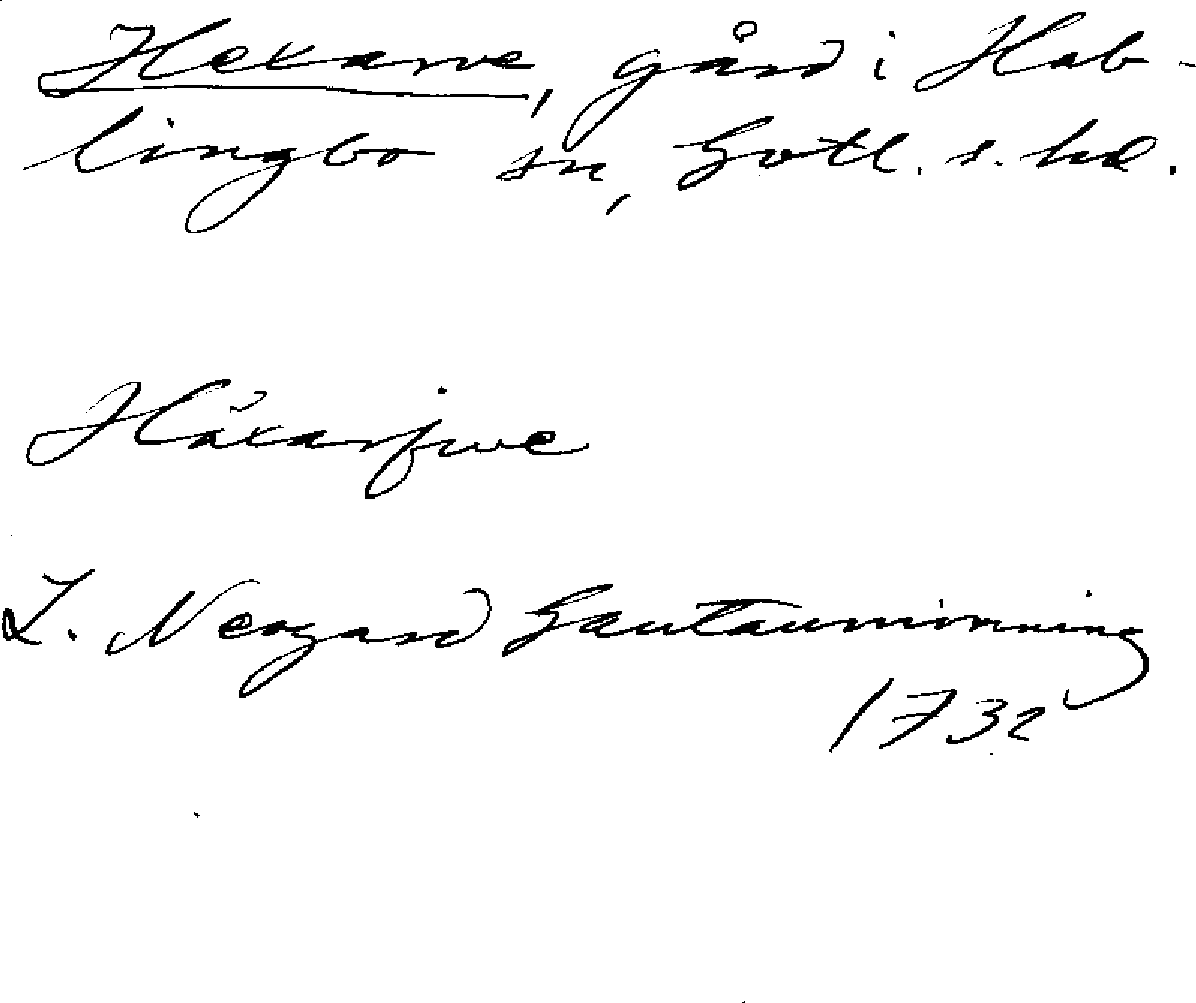 Hexarve, gård i Hab-
lingbo sn, Gotl. s. hd.
Häxarfwe
L. Neogard Gautauminning
1732